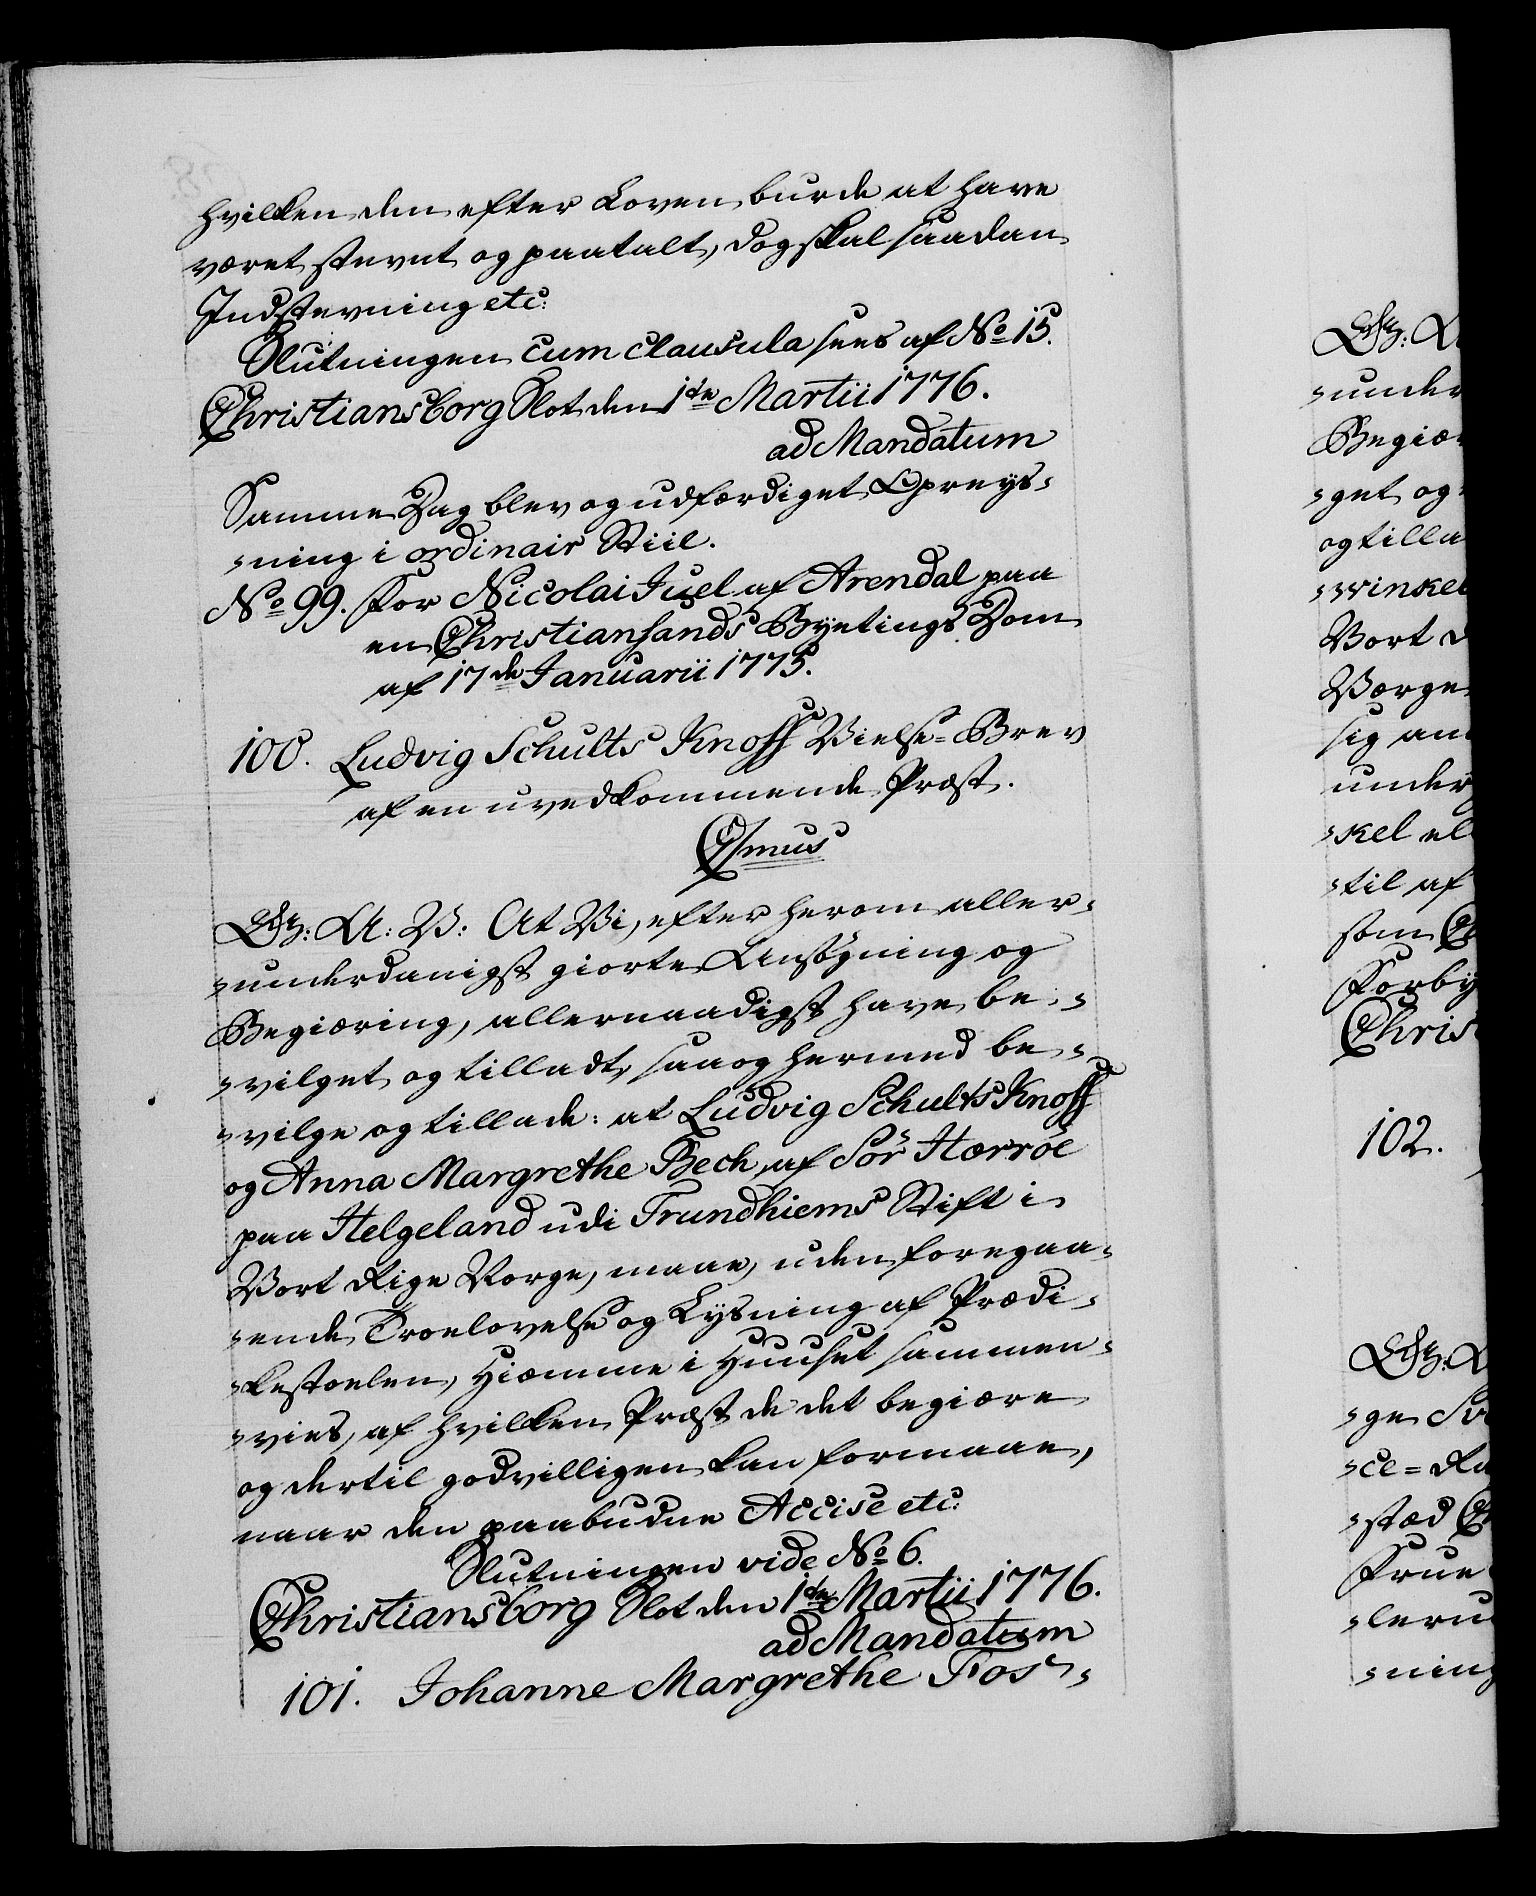 hvilken den efter Loven burde at have
været stevnt og paatalt, dog skal saadan
Indstevning etc:
Slutningen cum clausula sees af No 15.
Christiansborg Slot den 1ste Martii 1776.
ad Mandatum
Samme Dag blev og udfærdiget Opreys-
-ning i ordinair Stiil.
No 99. For Nicolai Juel af Arendal paa
en Christiansands Byetings Dom
af 17de Januarii 1775.
100. Ludvig Schults Knoff Vielse-Brev
af en uvedkommende Præst.
C7mus
G: A: V: At Vi, efter herom aller-
-underdanigst giorte Ansøgning og
Begiæring, allernaadigst have be-
-vilget og tilladt, saa og hermed be-
-vilge og tillade: at Ludvig Schults Knoff
og Anna Margrethe Bech af Sør Herrøe
paa Helgeland udi Trundhiems Stift i
Vort Rige Norge, maae, uden foregaa-
-ende Troelovelse og Lysning af Prædi-
-kestoelen, Hiemme i Huuset sammen-
-vies, af hvilken Præst de det begiære
og dertil godvilligen kan formaae,
naar den paabudne Accise etc:
Slutningen vide No 6.
Christiansborg Slot den 1ste Martii 1776.
ad Mandatum
101. Johanne Margrethe Fos-
-under
Begiæ
-get og
og tilla
-winkel
Vort
Norge
sig
under
-kel el
-til af
som
Forby
Chris
102.
-ge
-ce=
-stæd
Frue
-leru
-ning